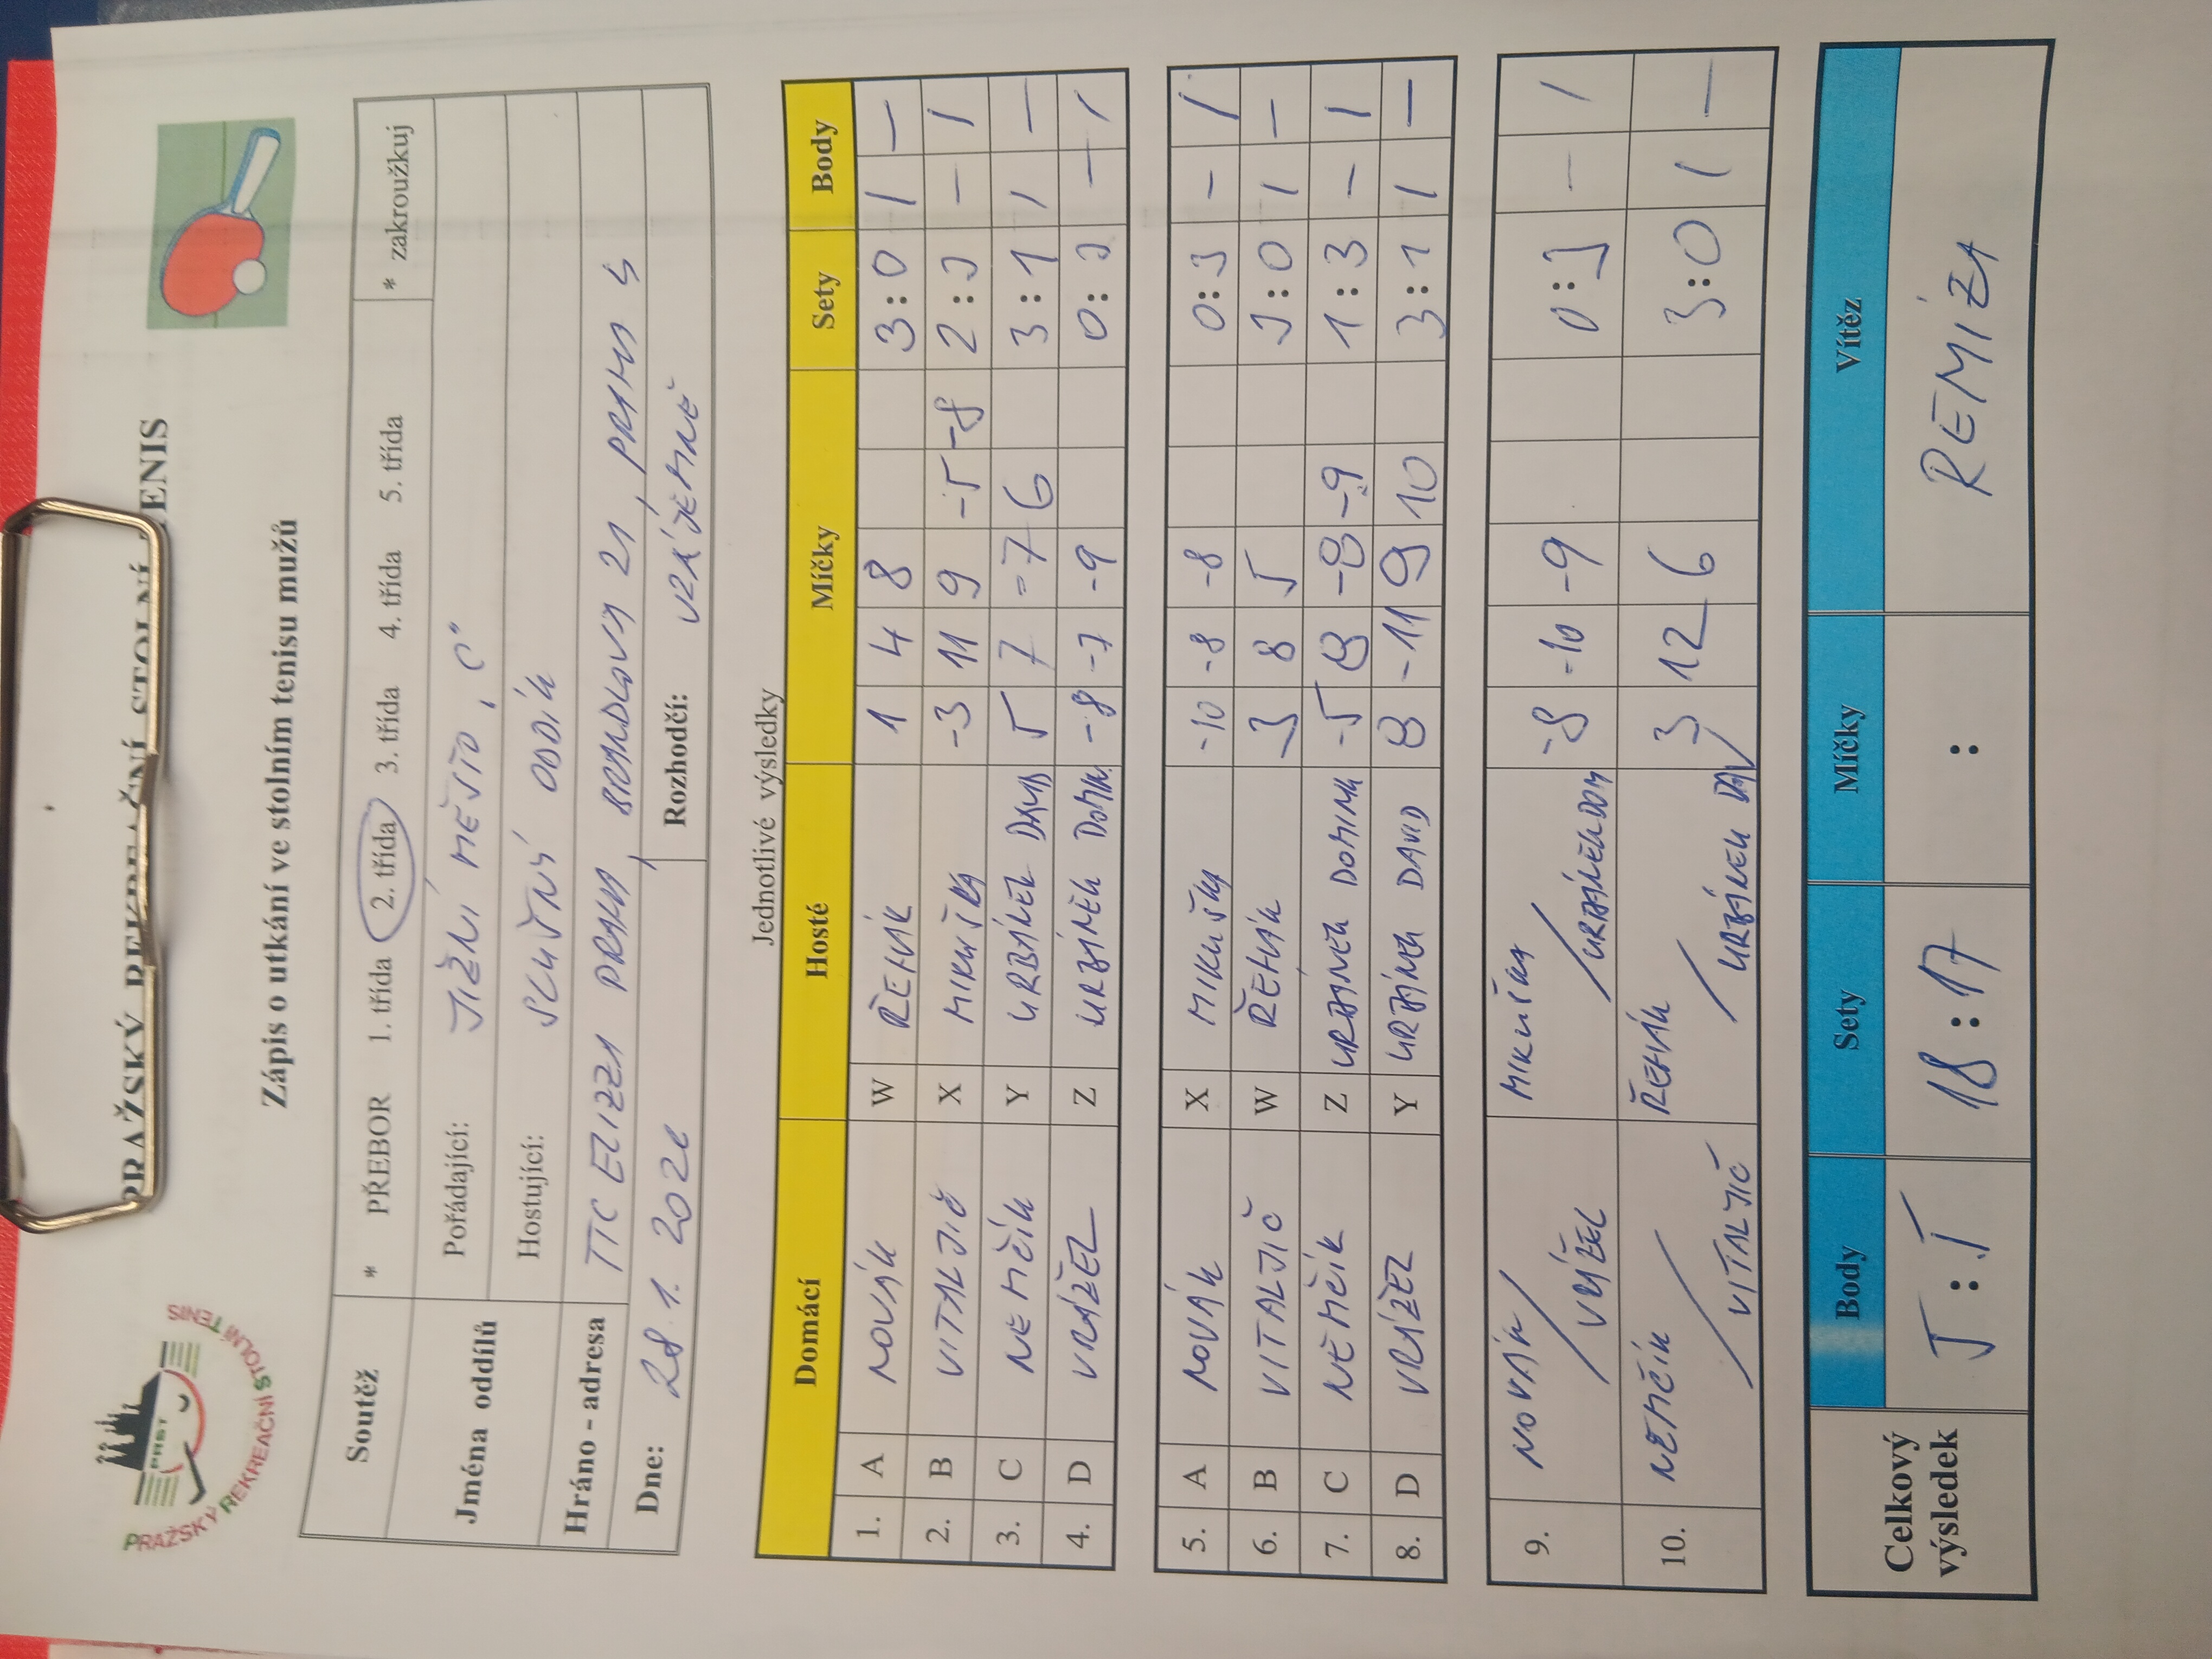 PRAŽSKÝ REKREAČNÍ STOLNÍ TENIS
PRST
PRAŽSKÝ REKREAČNÍ STOLNÍ TENIS
Zápis o utkání ve stolním tenisu mužů
Soutěž * PŘEBOR 1. třída 2. třída 3. třída 4. třída 5. třída * zakroužkuj
Jména oddílů Pořádající: JIŽNÍ MĚSTO „C"
Hostující: SLUŠNÝ ODDÍL
Hráno - adresa TTC ELIZZA PRAHA, BRANDLOVA 21, PRAHA 4
Dne: 28. 1. 202 Rozhodčí: VZÁJEMNĚ
Jednotlivé výsledky
Domácí Hosté Míčky Sety Body
1. A NOVÁK W ŘEHÁK 1 4 8 3:0 1 –
2. B VITALJIČ X MIKUŠKA -3 11 9 -5 -8 2:3 – 1
3. C NEMČÍK Y URBÁNEK DAVID 5 7 -7 6 3:1 1 –
4. D VRÁŽEL Z URBÁNEK DOMIN -8 -7 -9 0:3 – 1
5. A NOVÁK X MIKUŠKA -10 -8 -8 0:3 – 1
6. B VITALJIČ W ŘEHÁK 3 8 5 3:0 1 –
7. C NEMČÍK Z URBÁNEK DOMINIK -5 8 -8 -9 1:3 – 1
8. D VRÁŽEL Y URBÁNEK DAVID 8 -11 9 10 3:1 1 –
9. NOVÁK / VRÁŽEL MIKUŠKA / URBÁNEK DOM -8 -10 -9 0:3 – 1
10. NEMČÍK / VITALJIČ ŘEHÁK / URBÁNEK DAV 3 12 6 3:0 1 –
Celkový výsledek Body Sety Míčky Vítěz
5:5 18:17 : REMÍZA